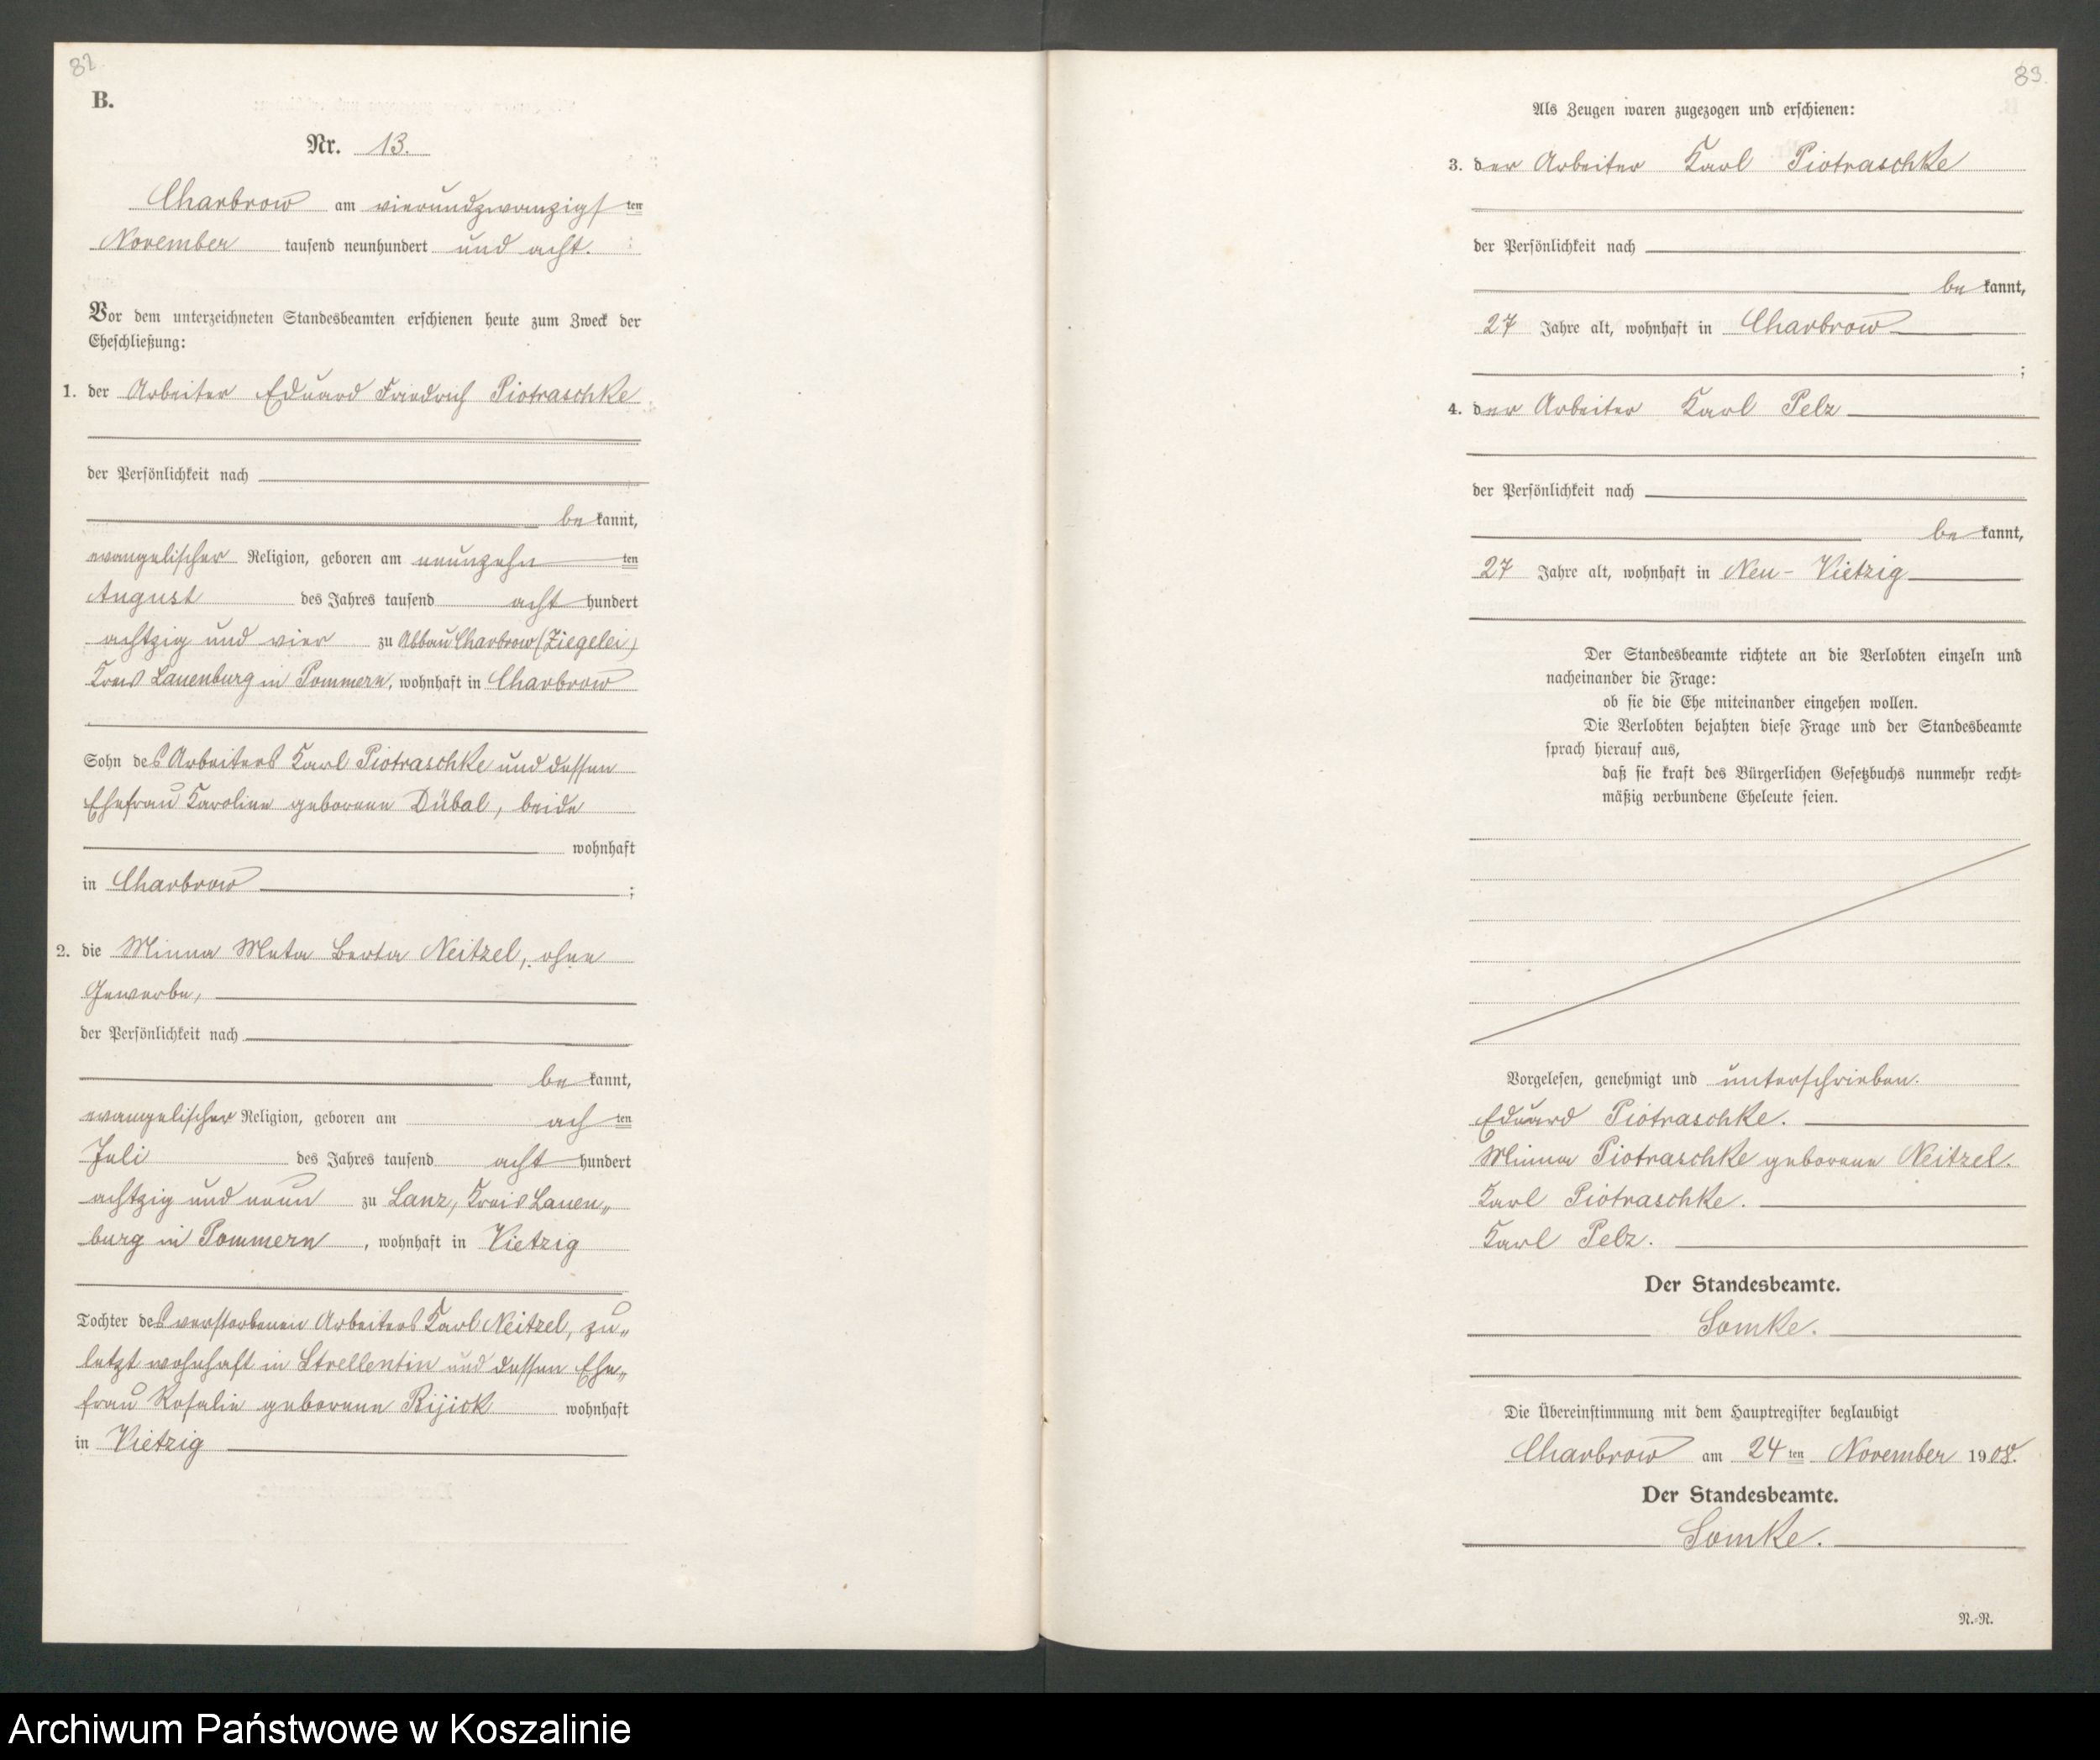 82
B.
Nr. 13.
Charbrow am vierundzwanzigsten
November tausend neunhundert und acht.
Vor dem unterzeichneten Standesbeamten erschienen heute zum Zweck der
Eheschließung:
1. der Arbeiter Eduard Friedrich Piotraschke
der Persönlichkeit nach
be kannt,
evangelischer Religion, geboren am neunzehn ten
August des Jahres tausend acht hundert
achtzig und vier zu Abbau Charbrow (Ziegelei)
Kreis Lauenburg in Pommern, wohnhaft in Charbrow
Sohn des Arbeiters Karl Piotraschke und dessen
Ehefrau Karoline geborene Dübal, beide
wohnhaft
in Charbrow ;
2. die Minna Meta Berta Neitzel, ohne
Gewerbe,
der Persönlichkeit nach
be kannt,
evangelischer Religion, geboren am ach ten
Juli des Jahres tausend acht hundert
achtzig und neun zu Lanz, Kreis Lauen„
burg in Pommern, wohnhaft in Vietzig
Tochter des verstorbenen Arbeiters Karl Neitzel, zu„
letzt wohnhaft in Strellentin und dessen Ehe„
frau Rosalie geborene Rijiok wohnhaft
in Vietzig
83.
Als Zeugen waren zugezogen und erschienen:
3. der Arbeiter Karl Piotraschke
der Persönlichkeit nach
be kannt,
27 Jahre alt, wohnhaft in Charbrow
;
4. der Arbeiter Karl Pelz
der Persönlichkeit nach
be kannt,
27 Jahre alt, wohnhaft in Neu-Vietzig
Der Standesbeamte richtete an die Verlobten einzeln und
nacheinander die Frage:
ob sie die Ehe miteinander eingehen wollen.
Die Verlobten bejahten diese Frage und der Standesbeamte
sprach hierauf aus,
daß sie kraft des Bürgerlichen Gesetzbuchs nunmehr recht-
mäßig verbundene Eheleute seien.
Vorgelesen, genehmigt und unterschrieben.
Eduard Piotraschke.
Minna Piotraschke geborene Neitzel.
Karl Piotraschke.
Karl Pelz.
Der Standesbeamte.
Somke.
Die Übereinstimmung mit dem Hauptregister beglaubigt
Charbrow am 24 ten November 1908.
Der Standesbeamte.
Somke.
N.-R.
Archiwum Państwowe w Koszalinie